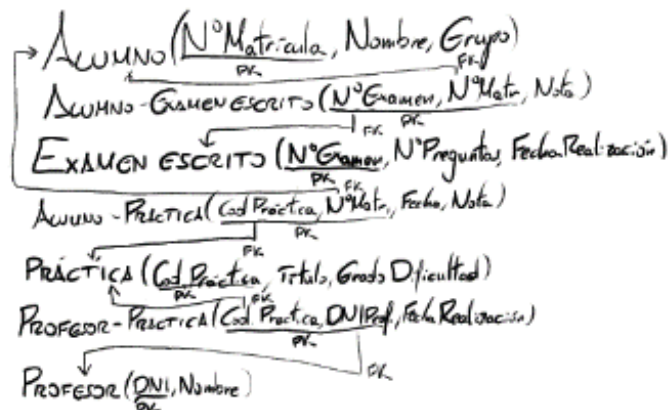 ALUMNO (NºMatrícula, Nombre, Grupo)
PK FK
ALUMNO-EXAMEN ESCRITO (NºExamen, NºMatr, Nota)
FK PK
EXAMEN ESCRITO (NºExamen, NºPreguntas, Fecha Realización)
PK FK
ALUMNO-PRÁCTICA (Cod Práctica, NºMatr, Fecha, Nota)
FK PK
PRÁCTICA (Cod Práctica, Título, Grado Dificultad)
PK FK
PROFESOR-PRÁCTICA (Cod Práctica, DNIProf, Fecha Realización)
PK
FK
PROFESOR (DNI, Nombre)
PK